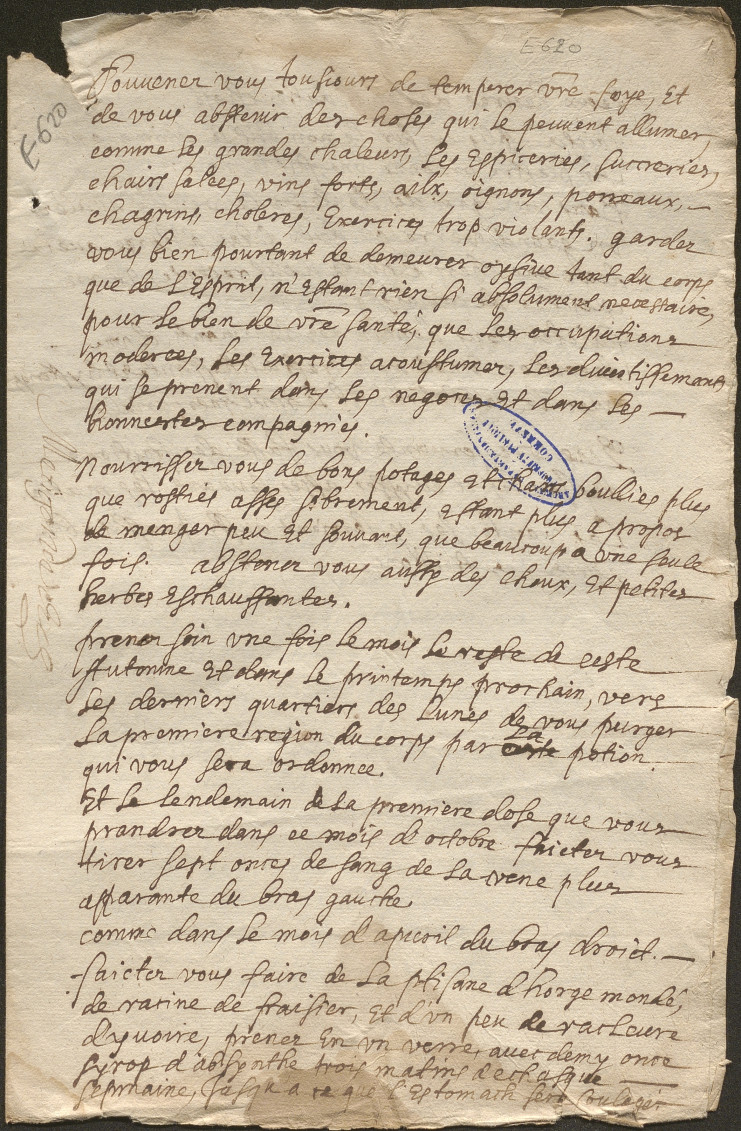 E 620
E 620
Souuener vous tousiours de temperer vre foye, Et
de vous abstenir des choses qui le peuuent allumer,
comme les grandes chaleurs, les Espiceries, succreries,
chairs salées, vins forts, ailx, oignons, porreaux,
chagrins, choleres, Exercices trop violants. gardez
vous bien pourtant de demeurer oysiue tant du corps
que de l'Esprit, n'Estant rien si absolument necessaire,
pour le bien de vre santé, que les occupations
moderees, les Exercices acoustumez, les diuertissemants
qui se prenent dans les negoces Et dans les
honnestes compagnies.
Nourrisser vous de bons potages Et boulies plus
que rosties asses sobrement, Estant plus a propos
de menger peu Et souuant, que beaucoup a vne seule
fois. abstener vous aussy des choux, Et petites
herbes Eschauffantes.
prener soin vne fois le mois le reste de ceste
Autonne Et dans le printemps prochain, vers
les derniers quartiers des lunes de vous purger
la premiere region du corps par la potion
qui vous sera ordonnee.
Et le lendemain de la premiere dose que vous
prandrez dans ce mois d'octobre faictez vous
tirer sept onces de sang de la vene plus
apparante du bras gauche
comme dans le mois d'apuril du bras droict.
faictez vous faire de la ptisane d'horge mondé,
de racine de fraisier, Et d'vn peu de racleure
d'yuoire, prenez En vn verre, auec demy once
syrop d'absynthe trois matins de chasque
sepmaine, jusqu a ce que l'Estomach sera soulagé